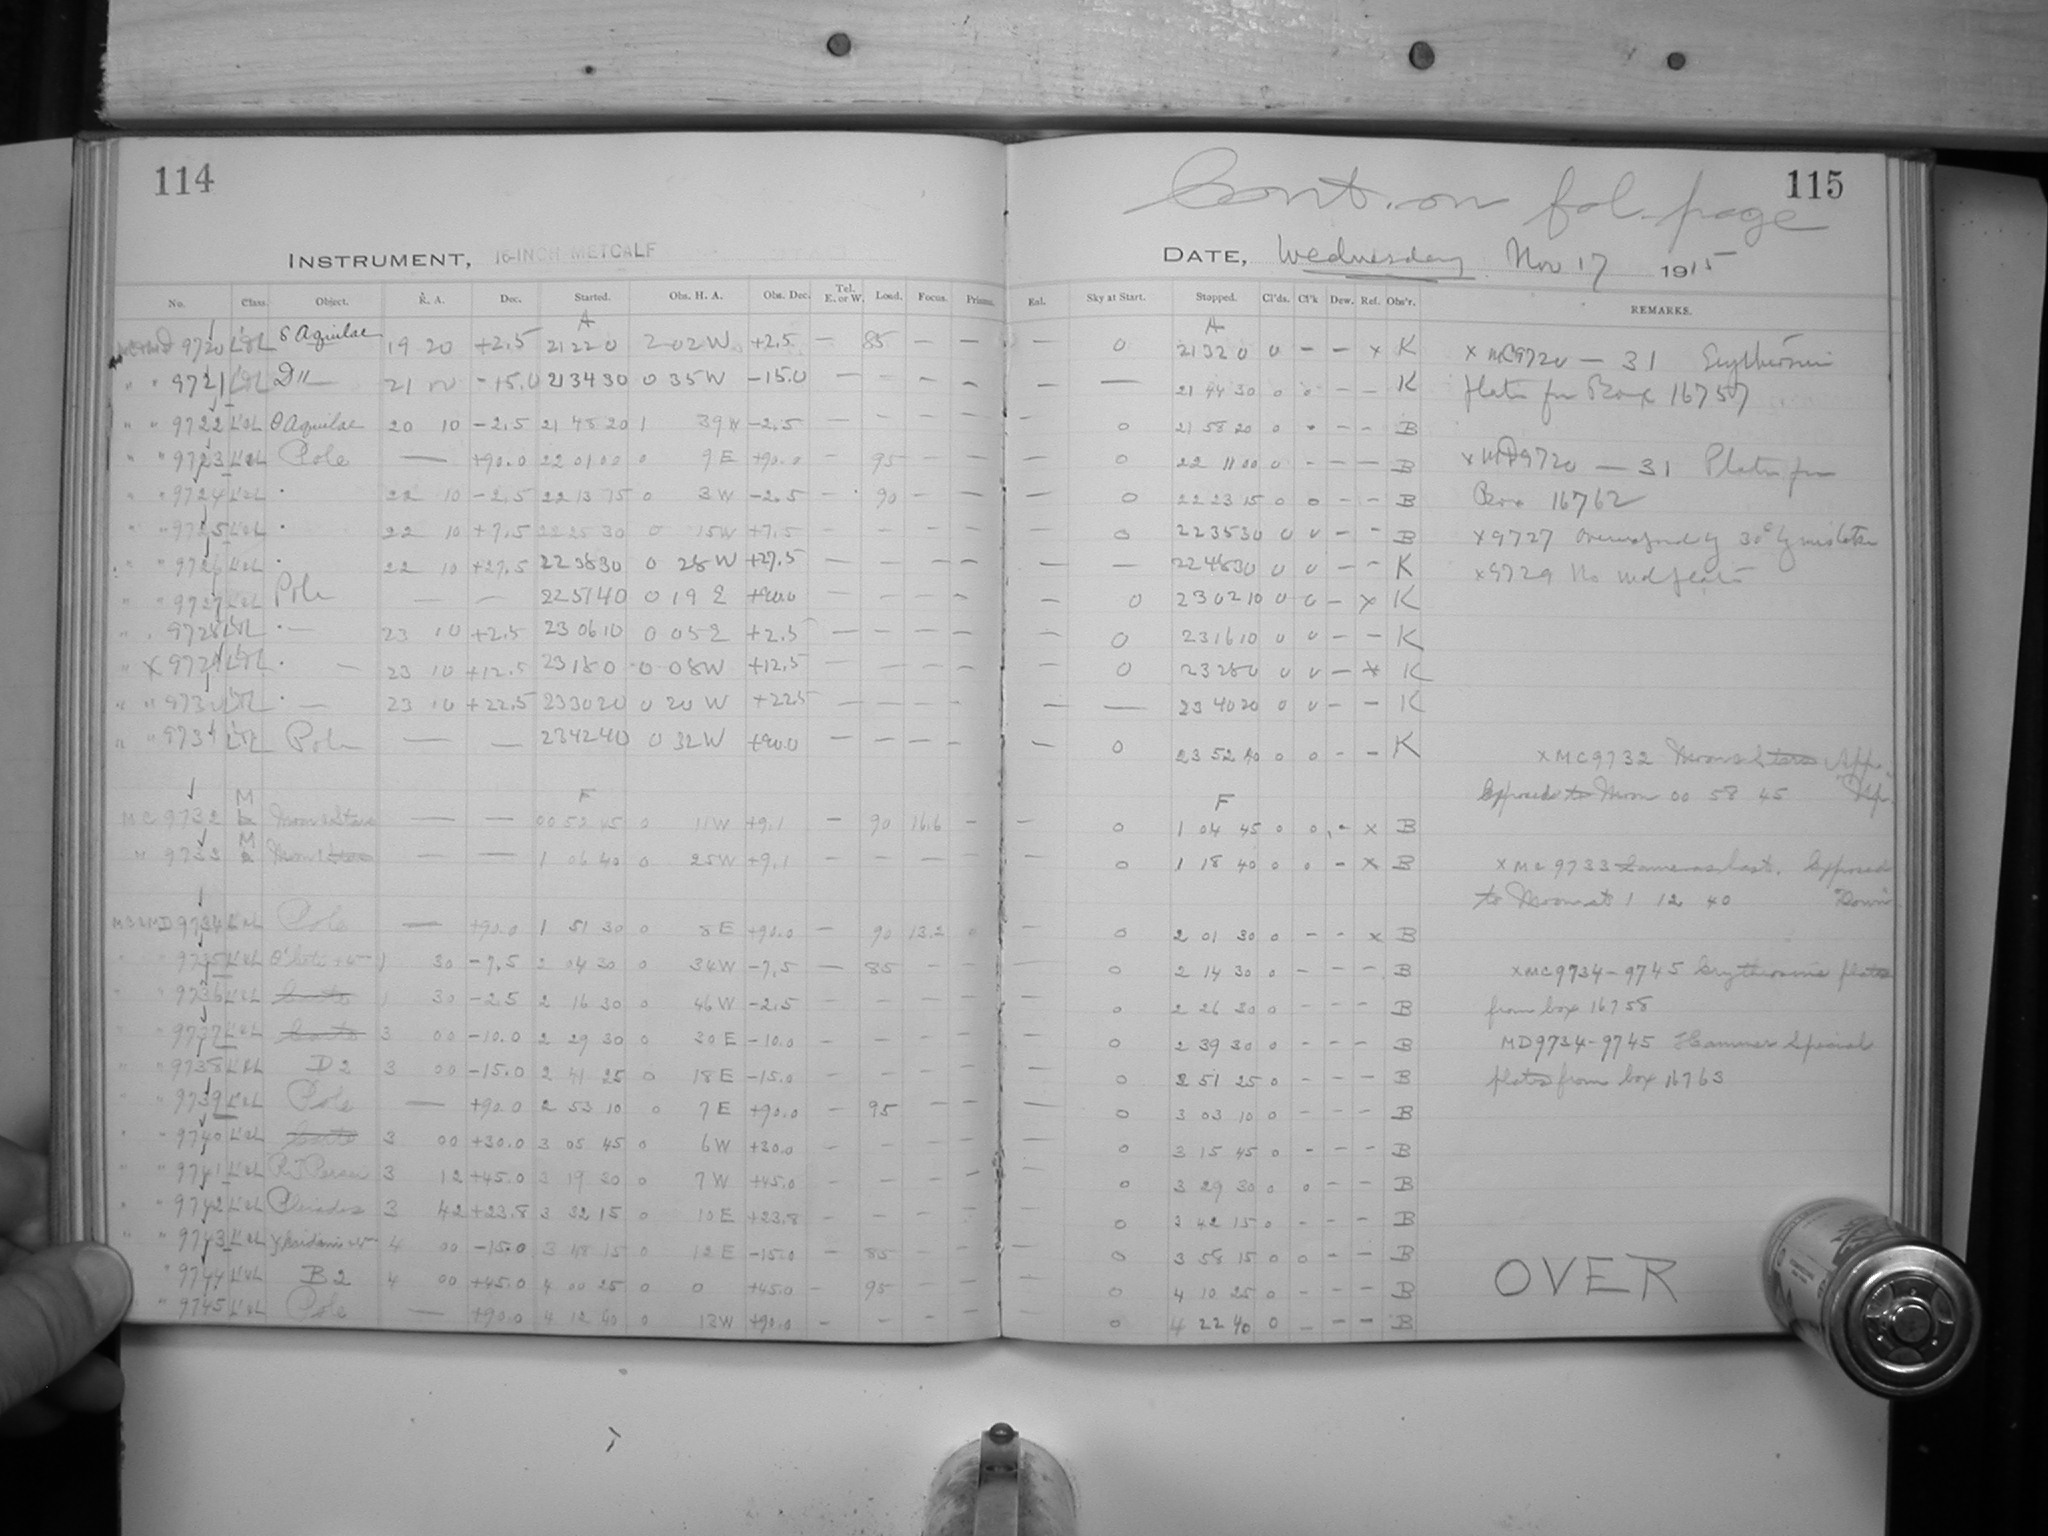 114
115
Cont. on fol. page
INSTRUMENT, 16-INCH METCALF
DATE, Wednesday Nov 17 1915
No. Class. Object. R. A. Dec. Started. Obs. H. A. Obs. Dec. Tel. E. or W. Load. Focus. Prisms. Eal. Sky at Start. Stopped. Cl'ds. Cl'k Dew. Ref. Obs'r. REMARKS.
A A
9720 δ Aquilae 19 20 +2.5 21 22 0 2 02 W +2.5 — 85 — — — 0 21 32 0 0 — — x K x MC9720 — 31 Erythrosin
" " 9721 D11 — 21 00 -15.0 21 34 30 0 35 W -15.0 — — — — — — 21 44 30 0 0 — — K plates from Box 16757
" " 9722 θ Aquilae 20 10 -2.5 21 48 20 1 39 W -2.5 — — — — — 0 21 58 20 0 — — B
" " 9723 Pole — +90.0 22 01 00 0 9 E +90.0 — 95 — — — 0 22 11 00 0 — — — B x MD9720 — 31 Plates from
" " 9724 22 10 -2.5 22 13 15 0 3 W -2.5 — 90 — — — 0 22 23 15 0 0 — — B Box 16762
" " 9725 22 10 +7.5 22 25 30 0 15 W +7.5 — — — — 0 22 35 30 0 0 — — B x 9727 by 30s by mistake
" " 9726 22 10 +27.5 22 38 30 0 28 W +27.5 — — — — — — 22 48 30 0 0 — — K x 9729 No md plate
" " 9727 Pole — — 22 51 40 0 19 E +90.0 — — — — — 0 23 02 10 0 0 — x K
" " 9728 — 23 10 +2.5 23 06 10 0 05 E +2.5 — — — — — 0 23 16 10 0 0 — — K
" x 9729 — 23 10 +12.5 23 18 0 0 08 W +12.5 — — — — — 0 23 28 0 0 0 — x K
" " 9730 — 23 10 +22.5 23 30 20 0 20 W +22.5 — — — — — — 23 40 20 0 0 — — K
" " 9731 Pole — — 23 42 40 0 32 W +90.0 — — — — — 0 23 52 40 0 0 — — K
x MC9732 Moon & Stars
F F Exposed to Moon 00 58 45
MC 9732 M Moon & Stars — — 00 52 45 0 11 W +9.1 — 90 16.6 — — 0 1 04 45 0 0 — x B
" 9733 M Moon & Stars — — 1 06 40 0 25 W +9.1 — — — — — 0 1 18 40 0 0 — x B x MC 9733 Same as last. Exposed
to Moon at 1 12 40 "Down"
MC & MD 9734 Pole — +90.0 1 51 30 0 8 E +90.0 — 90 13.2 0 — 0 2 01 30 0 — — x B
" " 9735 1 30 -7.5 2 04 30 0 34 W -7.5 — 85 — — — 0 2 14 30 0 — — — B x MC9734-9745 Erythrosine plates
" " 9736 1 30 -2.5 2 16 30 0 46 W -2.5 — — — — — 0 2 26 30 0 — — — B from box 16758
" " 9737 3 00 -10.0 2 29 30 0 30 E -10.0 — — — — — 0 2 39 30 0 — — — B MD9734-9745 Hammer Special
" " 9738 D 2 3 00 -15.0 2 41 25 0 18 E -15.0 — — — — — 0 2 51 25 0 — — — B plates from box 16763
" " 9739 Pole — +90.0 2 53 10 0 7 E +90.0 — 95 — — — 0 3 03 10 0 — — — B
" " 9740 3 00 +30.0 3 05 45 0 6 W +30.0 — — — — — 0 3 15 45 0 — — — B
" " 9741 3 12 +45.0 3 19 30 0 7 W +45.0 — — — — — 0 3 29 30 0 0 — — B
" " 9742 Pleiades 3 42 +23.8 3 32 15 0 10 E +23.8 — — — — — 0 3 42 15 0 — — — B
" " 9743 4 00 -15.0 3 48 15 0 12 E -15.0 — 85 — — — 0 3 58 15 0 0 — — B
" 9744 B 2 4 00 +45.0 4 00 25 0 0 +45.0 — 95 — — — 0 4 10 25 0 — — — B OVER
" 9745 Pole — +90.0 4 12 40 0 13 W +90.0 — — — — 0 4 22 40 0 — — — B